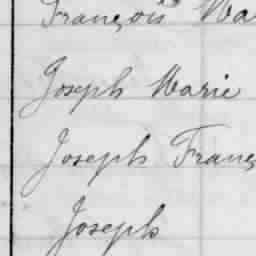 François Ma
Joseph Marie
Joseph Franç
Joseph